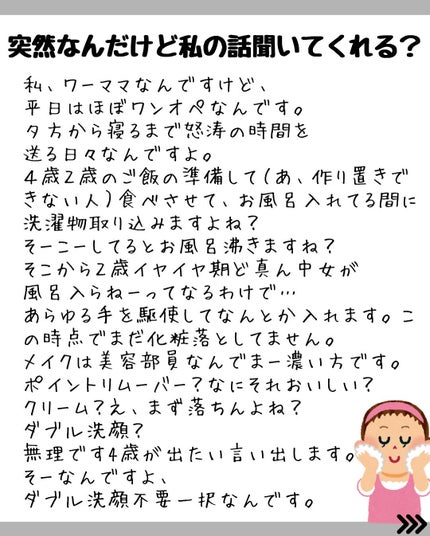 突然なんだけど私の話聞いてくれる?
私、ワーママなんですけど、
平日はほぼワンオペなんです。
夕方から寝るまで怒涛の時間を
送る日々なんですよ。
4歳2歳のご飯の準備して(あ、作り置きで
きない人)食べさせて、お風呂入れてる間に
洗濯物取り込みますよね?
そーこーしてるとお風呂沸きますね?
そこから2歳イヤイヤ期ど真ん中女が
風呂入らねーってなるわけで…
あらゆる手を駆使してなんとか入れます。こ
の時点でまだ化粧落としてません。
メイクは美容部員なんでまー濃い方です。
ポイントリムーバー?なにそれおいしい?
クリーム?え、まず落ちんよね?
ダブル洗顔?
無理です4歳が出たい言い出します。
そーなんですよ、
ダブル洗顔不要一択なんです。